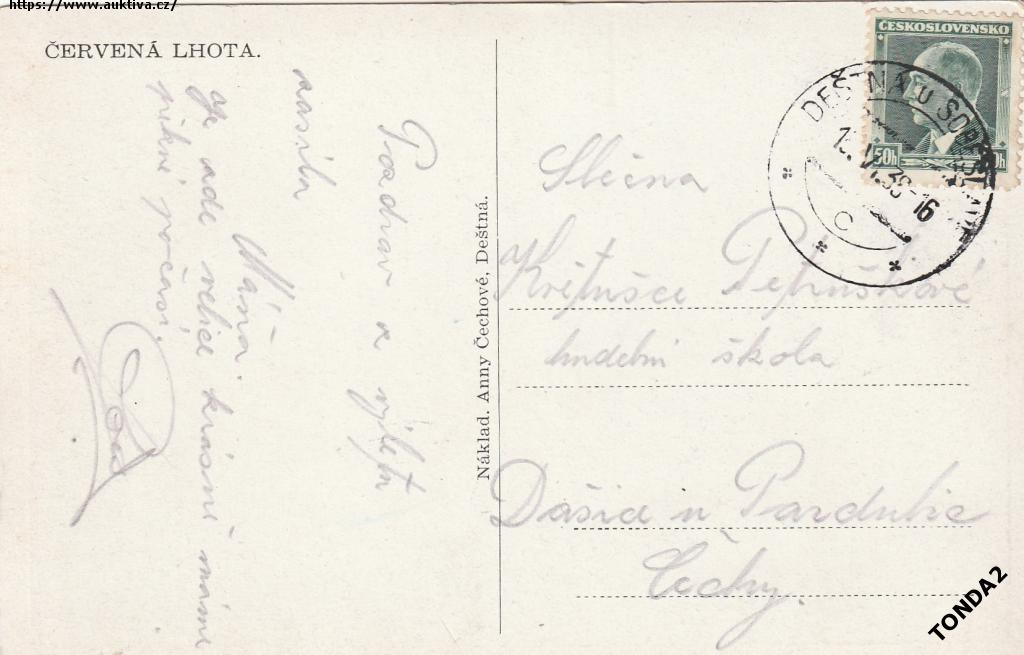 https://www.auktiva.cz/
ČERVENÁ LHOTA.
Pozdrav z výletu
zasílá
Máňa.
je zde velice krásně máme
pěkné počasí.
Náklad. Anny Čechové, Deštná.
ČESKOSLOVENSKO
50h
DEŠTNÁ U SOBĚSL
38-16
C
Slečna
Petruškové
hudební škola
Dašice u Pardubic
Čechy.
TONDA2